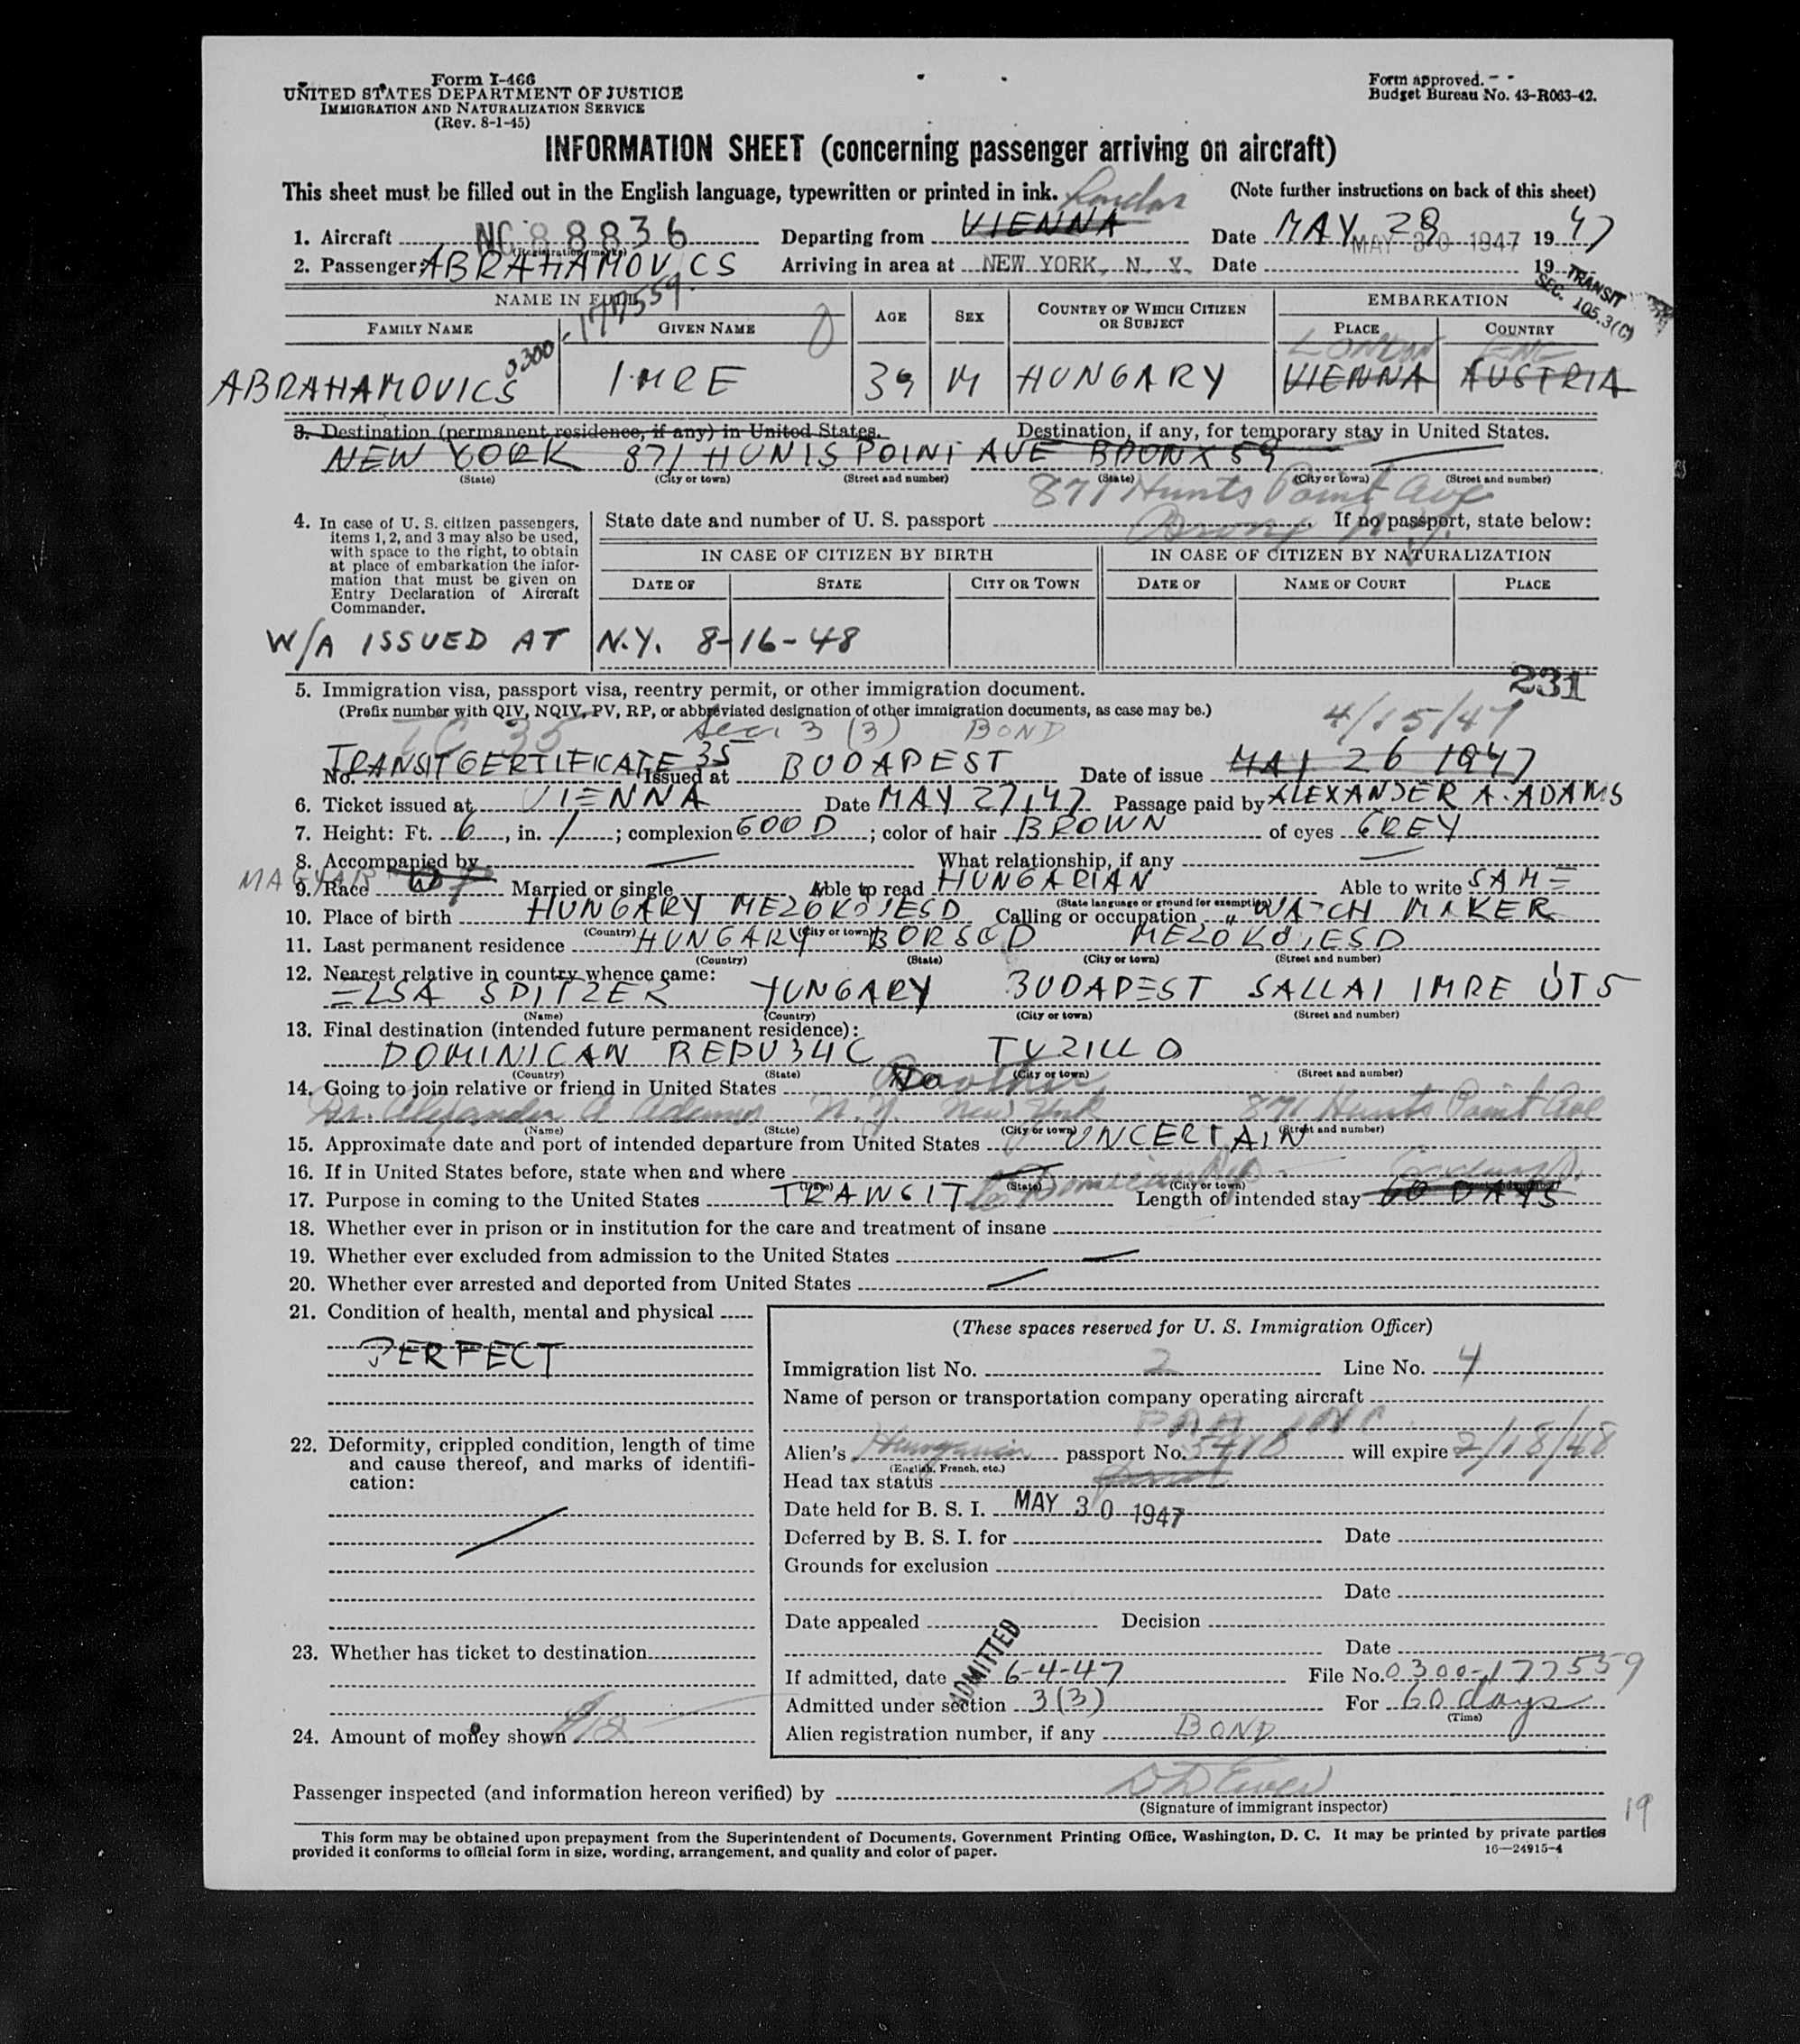 Form I-466
UNITED STATES DEPARTMENT OF JUSTICE
IMMIGRATION AND NATURALIZATION SERVICE
(Rev. 8-1-45)
Form approved.
Budget Bureau No. 43-R063-42.
INFORMATION SHEET (concerning passenger arriving on aircraft)
This sheet must be filled out in the English language, typewritten or printed in ink. (Note further instructions on back of this sheet)
London
1. Aircraft NC 88836 Departing from VIENNA Date MAY 28 1947
(Registration marks) MAY 30 1947
2. Passenger: ABRAHAMOVICS Arriving in area at NEW YORK, N. Y. Date 19
TRANSIT
SEC. 105.3(C)
NAME IN FULL AGE SEX COUNTRY OF WHICH CITIZEN OR SUBJECT EMBARKATION
FAMILY NAME GIVEN NAME PLACE COUNTRY
0300-177559
LONDON ENG
ABRAHAMOVICS IMRE 39 M HUNGARY VIENNA AUSTRIA
3. Destination (permanent residence, if any) in United States. Destination, if any, for temporary stay in United States.
NEW YORK 871 HUNTS POINT AVE BRONX 59
(State) (City or town) (Street and number) (State) (City or town) (Street and number)
871 Hunts Point Ave
Bronx N.Y.
4. In case of U. S. citizen passengers, items 1, 2, and 3 may also be used, with space to the right, to obtain at place of embarkation the information that must be given on Entry Declaration of Aircraft Commander.
State date and number of U. S. passport If no passport, state below:
IN CASE OF CITIZEN BY BIRTH IN CASE OF CITIZEN BY NATURALIZATION
DATE OF STATE CITY OR TOWN DATE OF NAME OF COURT PLACE
W/A ISSUED AT N.Y. 8-16-48
231
5. Immigration visa, passport visa, reentry permit, or other immigration document.
(Prefix number with QIV, NQIV, PV, RP, or abbreviated designation of other immigration documents, as case may be.)
TC 35 Sec. 3 (3) BOND 4/15/47
No. TRANSIT CERTIFICATE 35 Issued at BUDAPEST Date of issue MAY 26 1947
6. Ticket issued at VIENNA Date MAY 27, 47 Passage paid by ALEXANDER A. ADAMS
7. Height: Ft. 6, in. 1; complexion GOOD; color of hair BROWN of eyes GREY
8. Accompanied by — What relationship, if any —
MAGYAR
9. Race W Married or single Able to read HUNGARIAN Able to write SAME
(State language or ground for exemption)
10. Place of birth HUNGARY MEZOKOVESD Calling or occupation WATCH MAKER
(Country) (City or town)
11. Last permanent residence HUNGARY BORSOD MEZOKOVESD
(Country) (State) (City or town) (Street and number)
12. Nearest relative in country whence came:
ELSA SPITZER HUNGARY BUDAPEST SALLAI IMRE ÚT 5
(Name) (Country) (City or town) (Street and number)
13. Final destination (intended future permanent residence):
DOMINICAN REPUBLIC TUZILLO
(Country) (State) (City or town) (Street and number)
14. Going to join relative or friend in United States No Brother
Dr. Alexander A Adams N.Y. New York 871 Hunts Point Ave
(Name) (State) (City or town) (Street and number)
15. Approximate date and port of intended departure from United States UNCERTAIN
16. If in United States before, state when and where —
(State) (City or town)
17. Purpose in coming to the United States TRANSIT to Dominican Rep Length of intended stay 60 DAYS
18. Whether ever in prison or in institution for the care and treatment of insane
19. Whether ever excluded from admission to the United States —
20. Whether ever arrested and deported from United States —
21. Condition of health, mental and physical
PERFECT
22. Deformity, crippled condition, length of time and cause thereof, and marks of identification:
23. Whether has ticket to destination
24. Amount of money shown
(These spaces reserved for U. S. Immigration Officer)
Immigration list No. 2 Line No. 4
Name of person or transportation company operating aircraft
PAA INC
Alien's Hungarian passport No. will expire 2/18/48
(English, French, etc.)
Head tax status
Date held for B. S. I. MAY 30 1947
Deferred by B. S. I. for Date
Grounds for exclusion
Date
Date appealed Decision
Date
ADMITTED
If admitted, date 6-4-47 File No. 0300-177559
Admitted under section 3(3) For 60 days
(Time)
Alien registration number, if any BOND
Passenger inspected (and information hereon verified) by
(Signature of immigrant inspector)
19
This form may be obtained upon prepayment from the Superintendent of Documents, Government Printing Office, Washington, D. C. It may be printed by private parties
provided it conforms to official form in size, wording, arrangement, and quality and color of paper. 16—24915-4